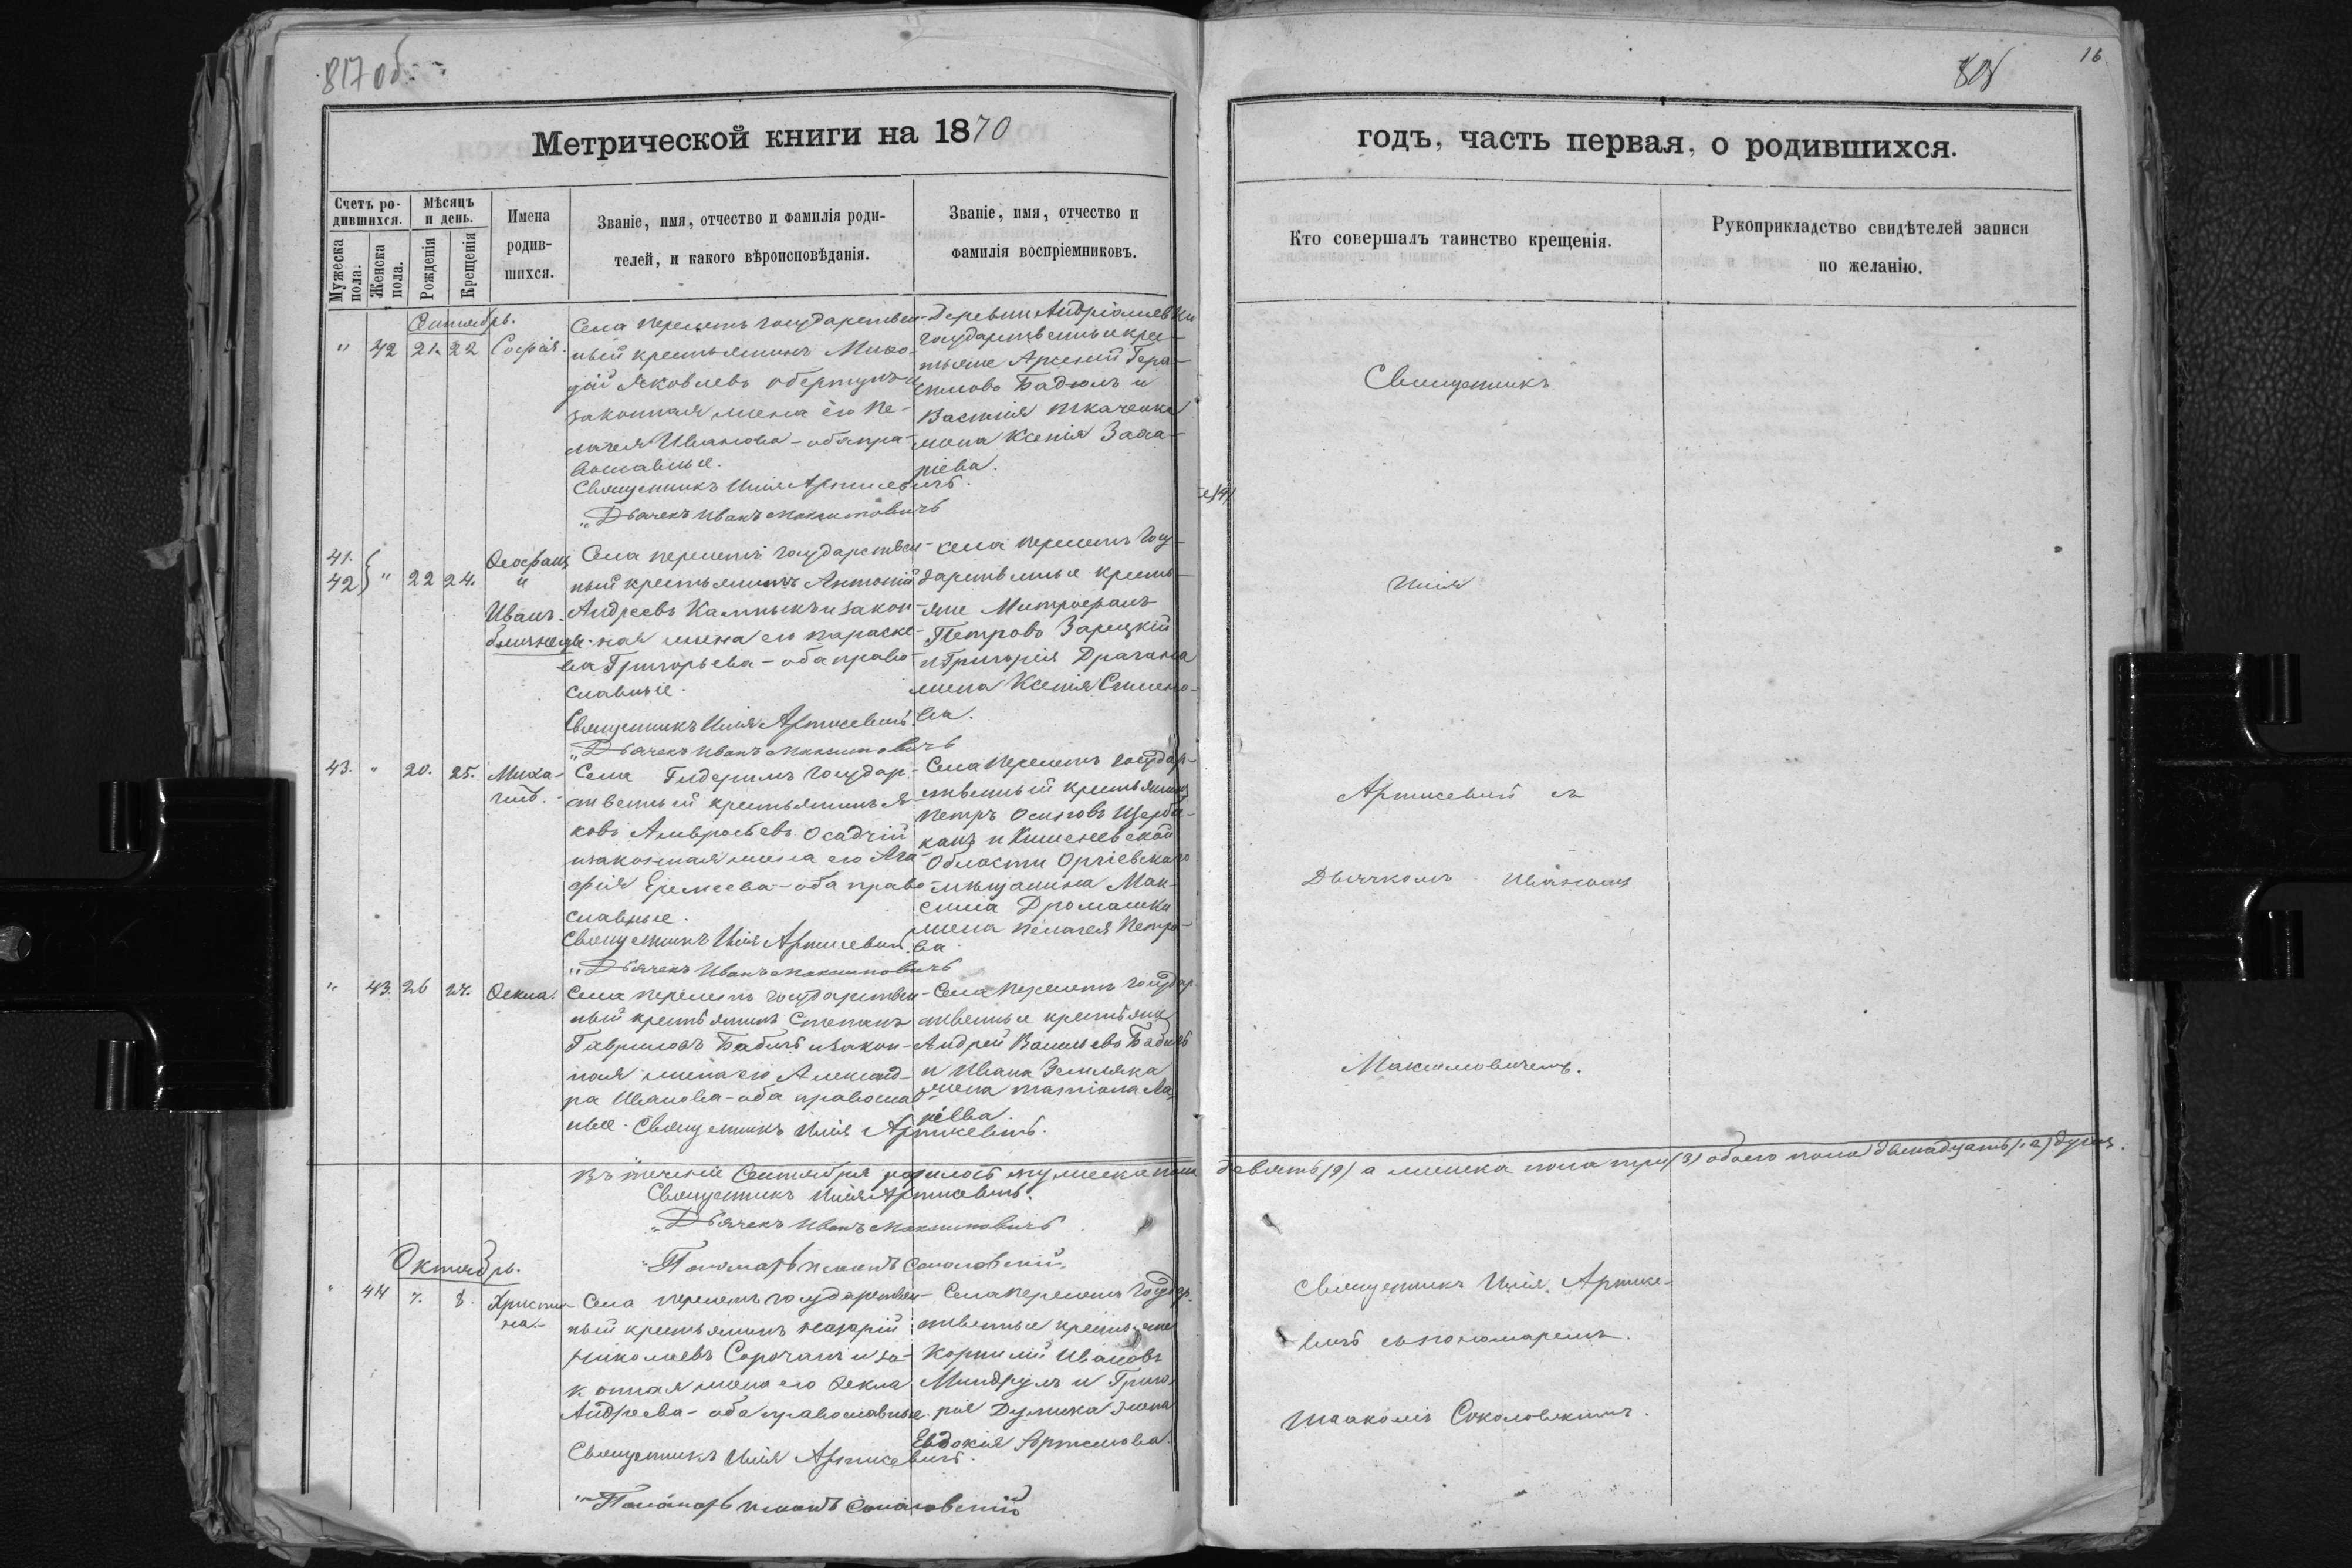 817 об.
16
Метрической книги на 1870
годъ, часть первая, о родившихся.
Счетъ родившихся.
Мѣсяцъ и день.
Мужеска пола.
Женска пола.
Рожденія
Крещенія
Имена родившихся.
Званіе, имя, отчество и фамилія родителей, и какого вѣроисповѣданія.
Званіе, имя, отчество и фамилія воспріемниковъ.
Кто совершалъ таинство крещенія.
Рукоприкладство свидѣтелей записи по желанію.
Сентябрь.
" 42 21. 22 Софія.
Села государствен-
ный крестьянинъ
Яковлевъ и
законная жена его Пе-
лагея Иванова - оба пра-
вославные.
Священникъ Илія Артикевичъ.
"Дьячекъ Иванъ Максимовичъ
Деревни
государственные крес-
тьяне Арсеній Гера-
симовъ и
Василія Ткаченка
жена Ксенія Заха-
ріева.
Священникъ
41. 42 } " 22 24. Феофанъ
и
Иванъ.
близнецы.
Села государствен-
ный крестьянинъ Антоній
Андреевъ и закон-
ная жена его Параске-
ва Григорьева - оба право-
славные.
Священникъ Илія Артикевичъ.
"Дьячекъ Иванъ Максимовичъ
села госу-
дарственные кресть-
яне Митрофанъ
Петровъ Зарецкій
и Григорія
жена Ксенія Симено-
ва.
Илія
43. " 20. 25. Миха-
илъ.
Села государ-
ственный крестьянинъ Я-
ковъ Амвросьевъ Осадчій
и законная жена его Ага-
фія Еремеева - оба право-
славные.
Священникъ Илія Артикевичъ.
"Дьячекъ Иванъ Максимовичъ
Села государ-
ственный крестьянинъ
Петръ Осиповъ Щерба-
канъ и Кишеневской
Области Оргіевскаго
мѣщанина Мак-
сима
жена Пелагея Петро-
ва.
Артикевичъ съ
Дьячкомъ Иваномъ
" 43. 26 27. Фекла.
Села государствен-
ный крестьянинъ Степанъ
Гавриловъ Бабичъ и закон-
ная жена его Александ-
ра Иванова - оба православ-
ные. Священникъ Илія Артикевичъ.
Села государ-
ственные крестьяне
Андрей Васильевъ Бабичъ
и Ивана Земляка
жена Татіана
Максимовичемъ.
Въ теченіе Сентября родилось мужеска пола девять (9) а женска пола три (3) обоего пола двенадцать (12) душъ.
Священникъ Илія Артикевичъ.
"Дьячекъ Иванъ Максимовичъ
"Пономарь Соколовскій
Октябрь.
" 44 7. 8. Христи-
на.
Села государствен-
ный крестьянинъ Назарій
Николаевъ Сорочанъ и за-
конная жена его Фекла
Андреева - оба православные.
Священникъ Илія Артикевичъ.
"Пономарь Соколовскій
Села государ-
ственные крестьяне
Корнилій Ивановъ
и Григо-
рія жена
Евдокія Артемова.
Священникъ Илія Артике-
вичъ съ пономаремъ
Соколовскимъ.